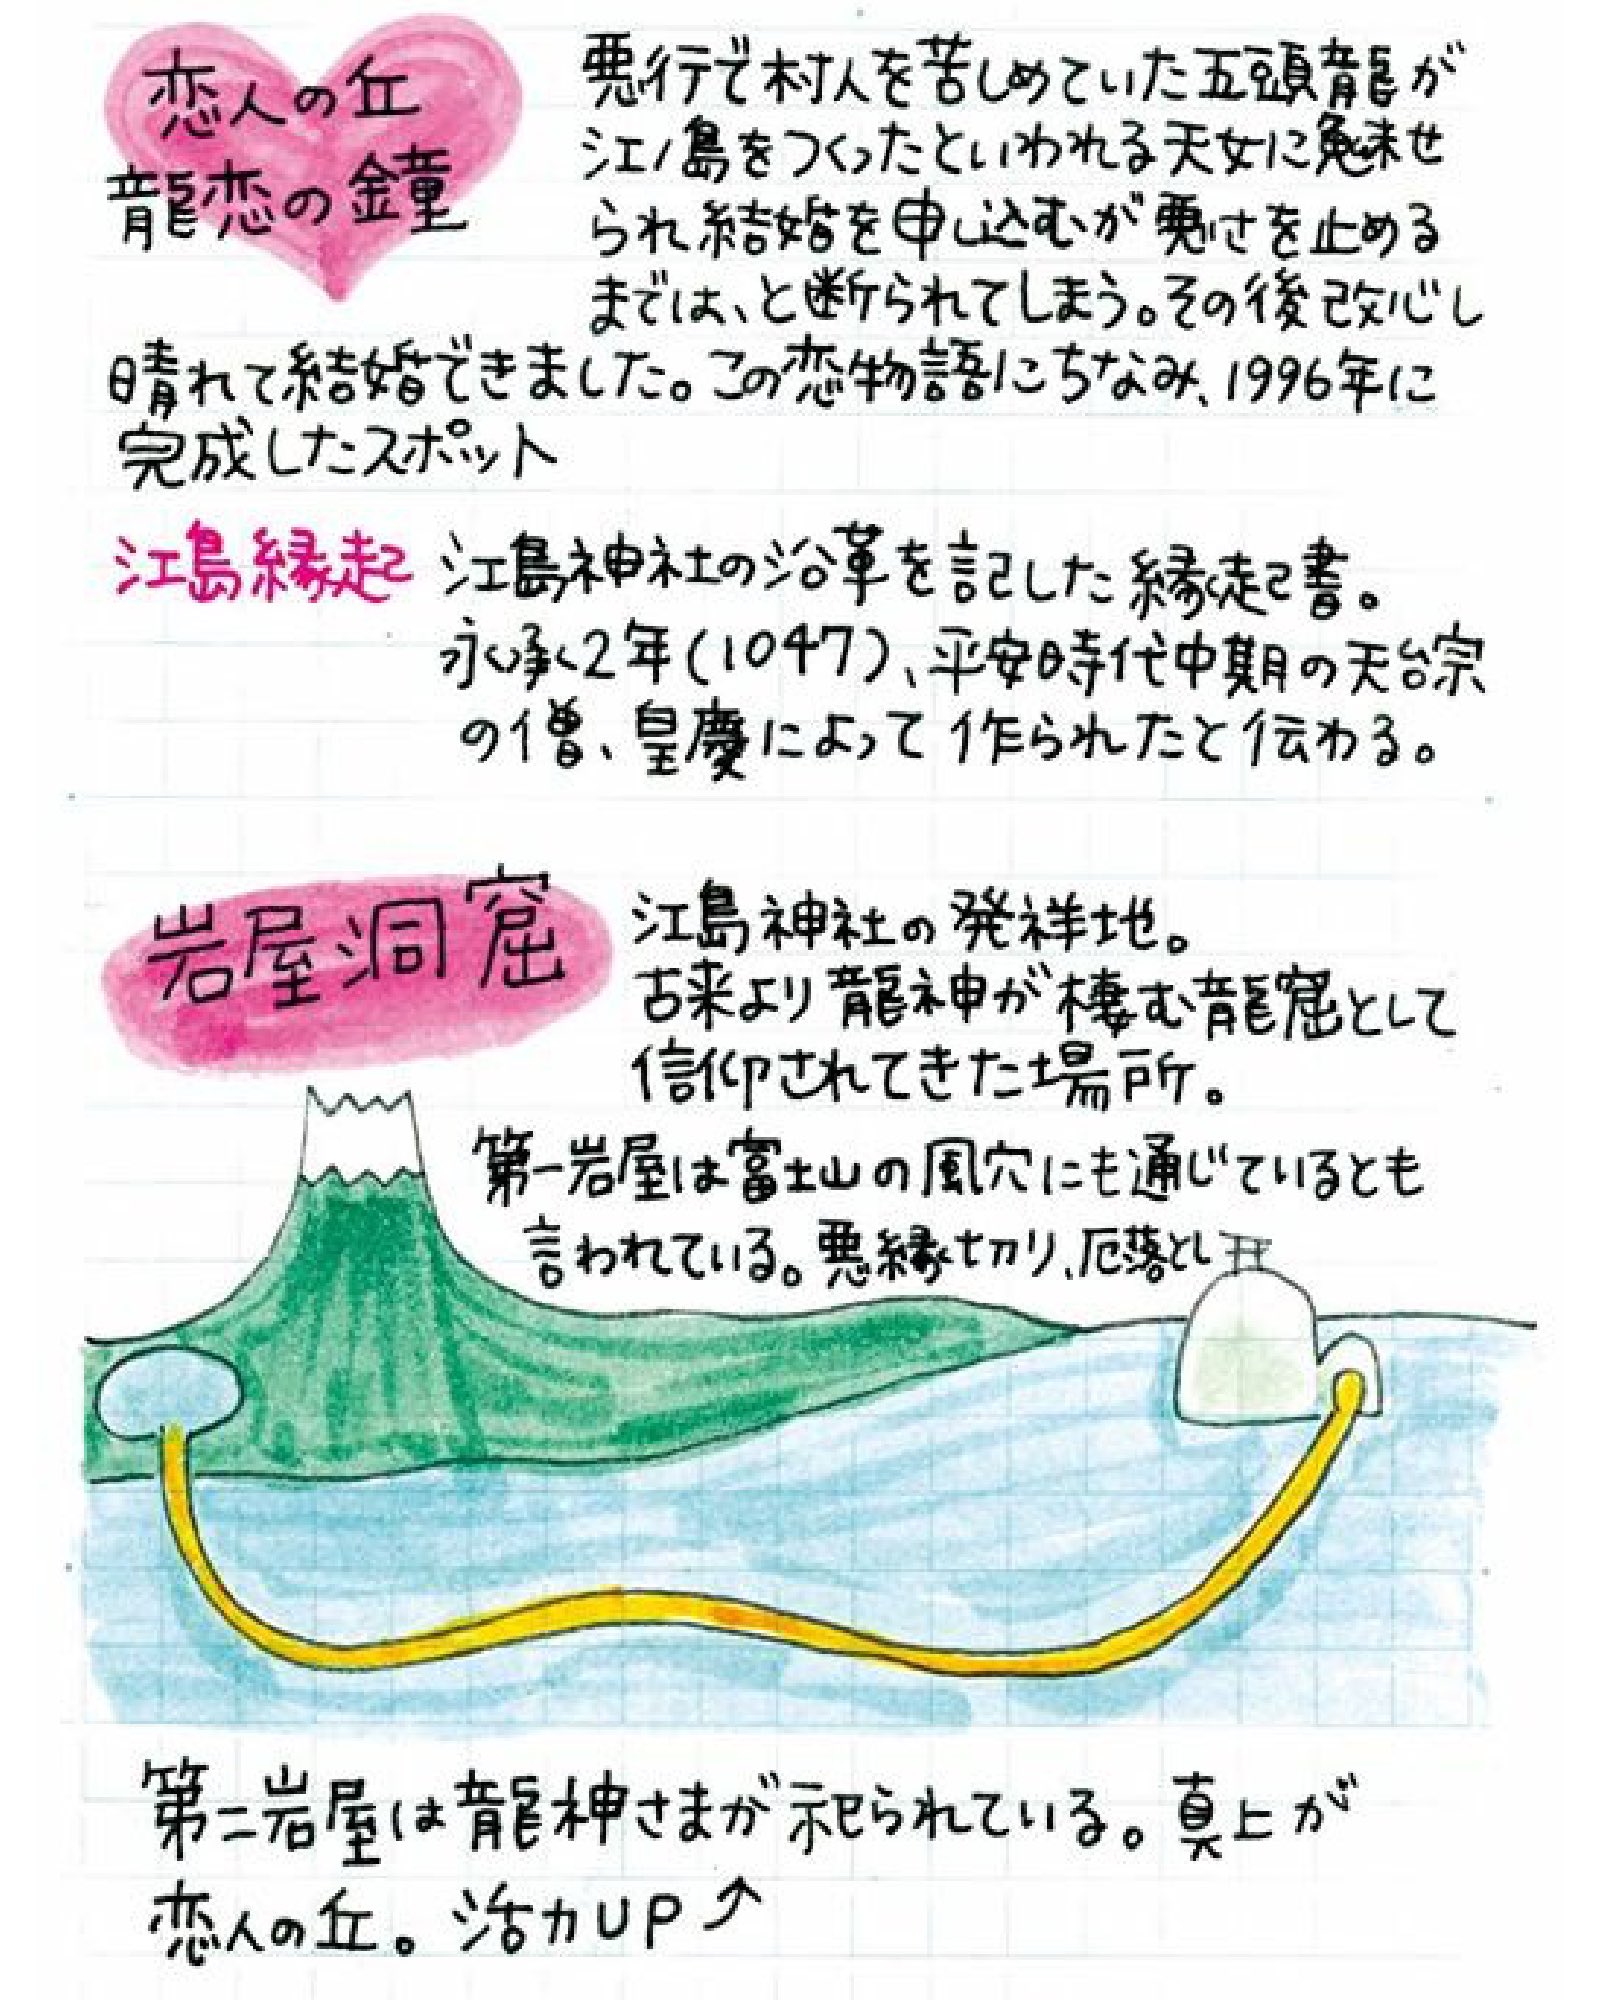 恋人の丘
龍恋の鐘
悪行で村人を苦しめていた五頭龍が
江ノ島をつくったといわれる天女に魅せ
られ結婚を申し込むが悪さを止める
までは、と断られてしまう。その後改心し
晴れて結婚できました。この恋物語にちなみ、1996年に
完成したスポット
江島縁起
江島神社の沿革を記した縁起書。
永承2年(1047)、平安時代中期の天台宗
の僧、皇慶によって作られたと伝わる。
岩屋洞窟
江島神社の発祥地。
古来より龍神が棲む龍窟として
信仰されてきた場所。
第一岩屋は富士山の風穴にも通じているとも
言われている。悪縁切り、厄落とし
第二岩屋は龍神さまが祀られている。真上が
恋人の丘。活力UP↗